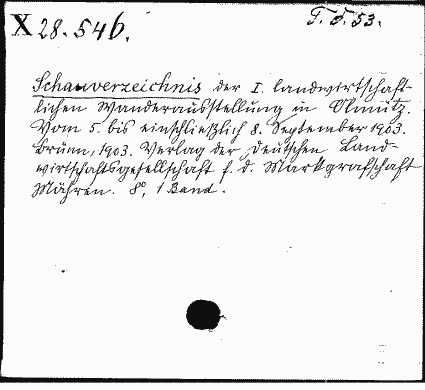 X 28.546.
T. d. 53.
Schauverzeichnis der I. landwirtschaft-
lichen Wanderausstellung in Olmütz.
Vom 5. bis einschließlich 8. September 1903.
Brünn, 1903. Verlag der Deutschen Land-
wirtschaftsgesellschaft f. d. Markgrafschaft
Mähren. 8°, 1 Band.